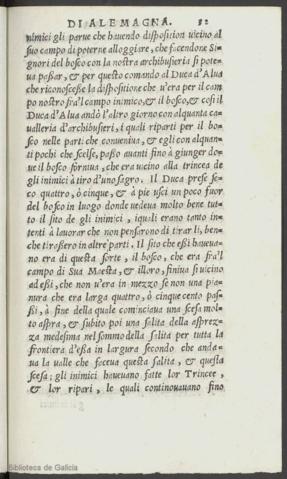 DI ALEMAGNA.
nimici gli parue che hauendo disposition uicino al
suo campo di poterne alloggiare, che facendone Si-
gnori del bosco con la nostra archibusieria si pote-
ua passar, & per questo comando al Duca d'Alua
che riconoscesse la dispositione che u'era per il cam
po nostro fra'l campo inimico, & il bosco, & cosi il
Duca d'Alua andò l'altro giorno con alquanta ca-
ualleria d'archibusieri, i quali riparti per il bo-
sco nelle parti che conueniua, & egli con alquan-
ti pochi che scelse, passò auanti fino à giunger do-
ue il bosco forniua, che era uicino alla trincea de
gli inimici à tiro d'uno sagro. Il Duca prese se-
co quattro, ò cinque, & à pie usci un poco fuor
del bosco in luogo donde uedeua molto bene tut-
to il sito de gli inimici, iquali erano tanto in-
tenti à lauorar che non pensarono di tirar li, ben-
che tirassero in altre parti. Il sito che essi haueua-
no era di questa sorte, il bosco, che era fra'l
campo di Sua Maesta, & illoro, finiua si uicino
ad essi, che non u'era in mezzo se non una pia-
nura che era larga quattro, ò cinque cento pas-
si, à fine della quale cominciaua una scesa mol-
to aspra, & subito poi una salita della asprez-
za medesima nel sommo della salita per tutta la
frontiera d'essa in largura secondo che anda-
ua la ualle che faceua questa salita, & questa
scesa; gli inimici haueuano fatte lor Trincee,
& lor ripari, le quali continouauano fino
Biblioteca de Galicia